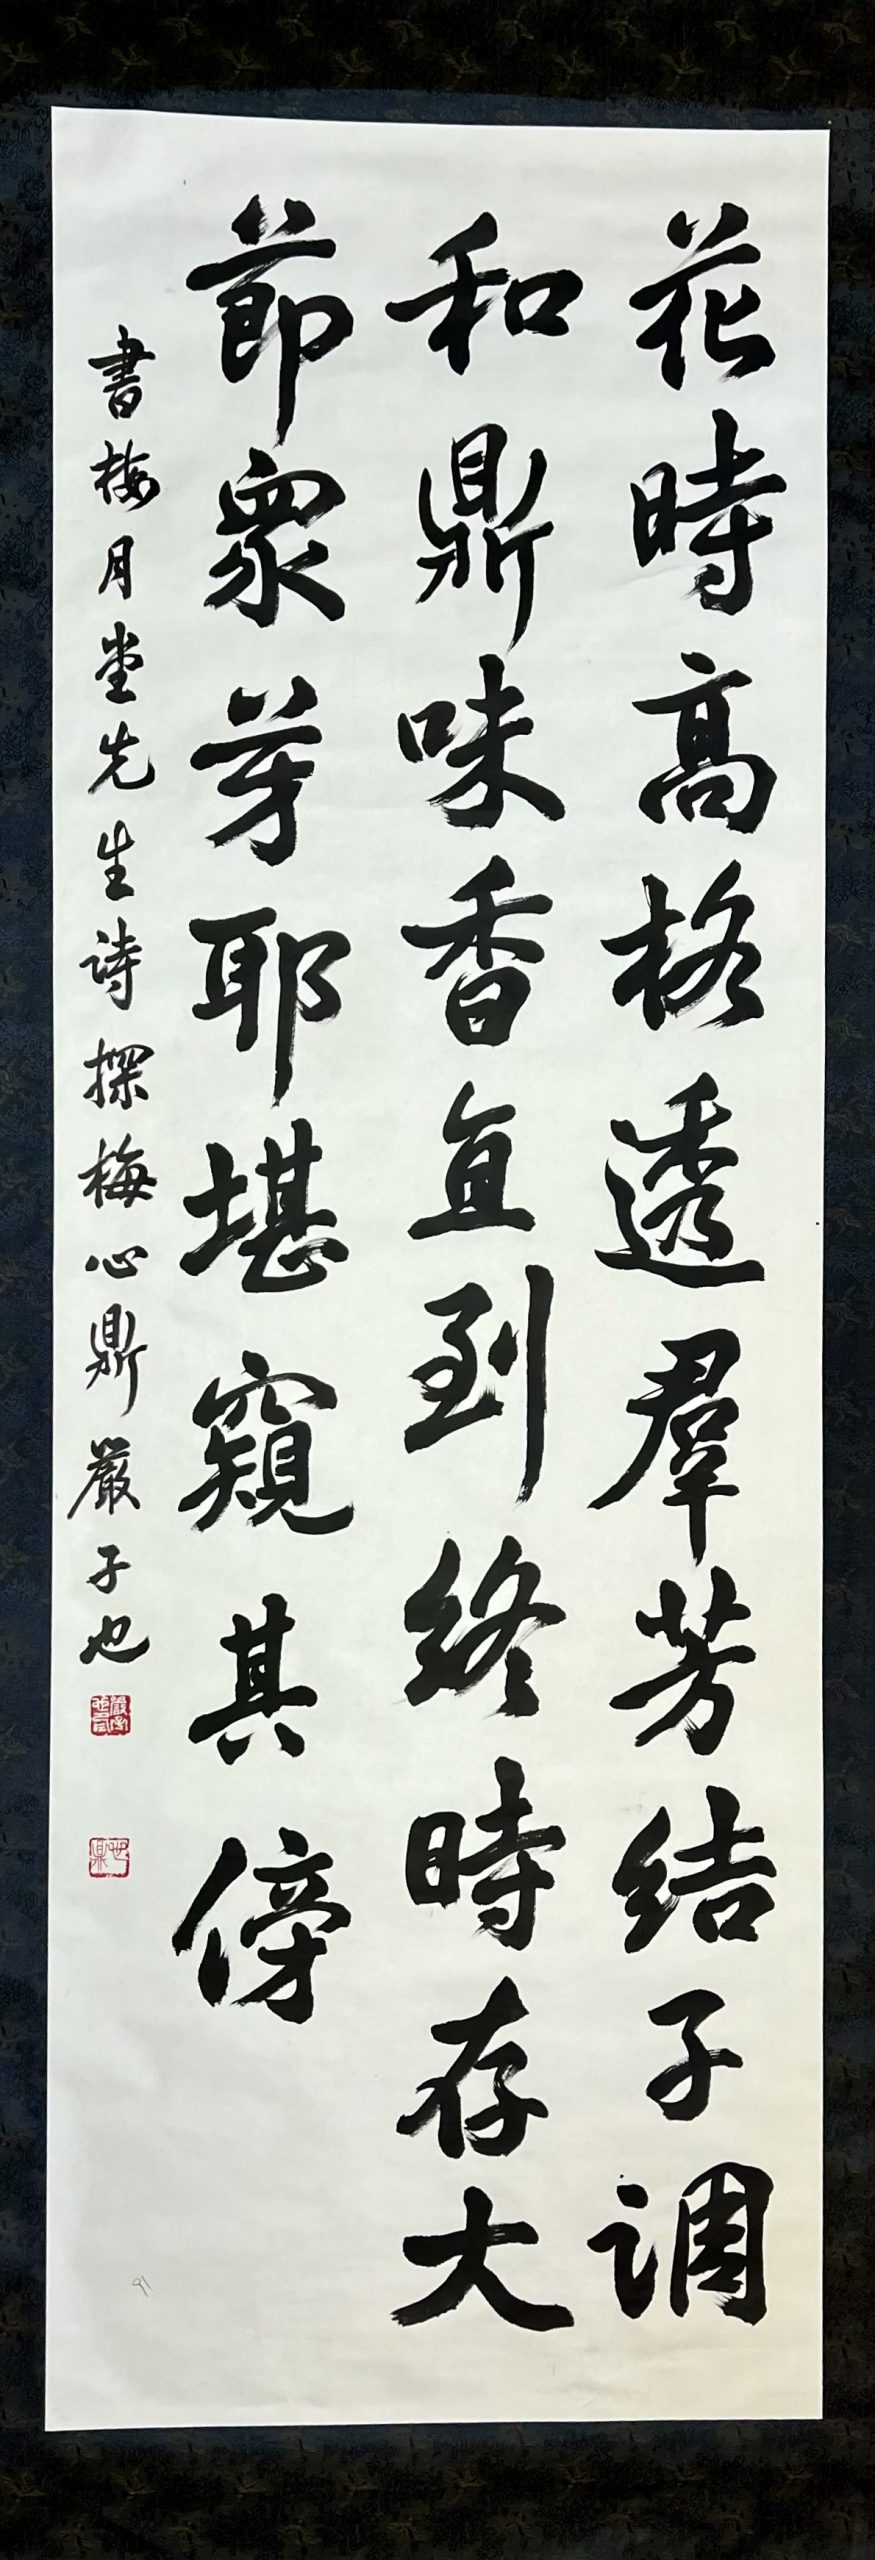 花時高格透羣芳結子調
和鼎味香直到終時存大
節衆芽耶堪窺其傍
書梅月堂先生詩探梅心鼎嚴子也